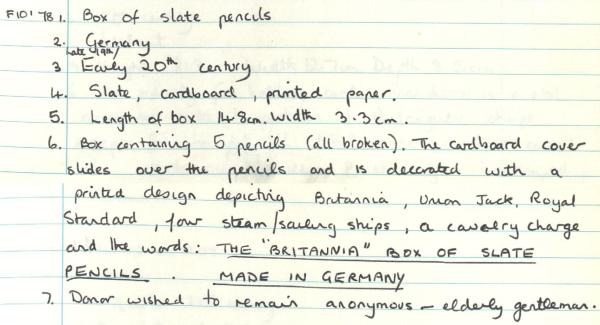 F101 '78 1. Box of slate pencils
2. Germany
Late 19th/
3 Early 20th century
4. Slate, cardboard, printed paper.
5. Length of box 14.8cm. Width 3.3cm.
6. Box containing 5 pencils (all broken). The cardboard cover
slides over the pencils and is decorated with a
printed design depicting Britannia, Union Jack, Royal
Standard, four steam/sailing ships, a cavalry charge
and the words: THE "BRITANNIA" BOX OF SLATE
PENCILS. MADE IN GERMANY
7. Donor wished to remain anonymous - elderly gentleman.